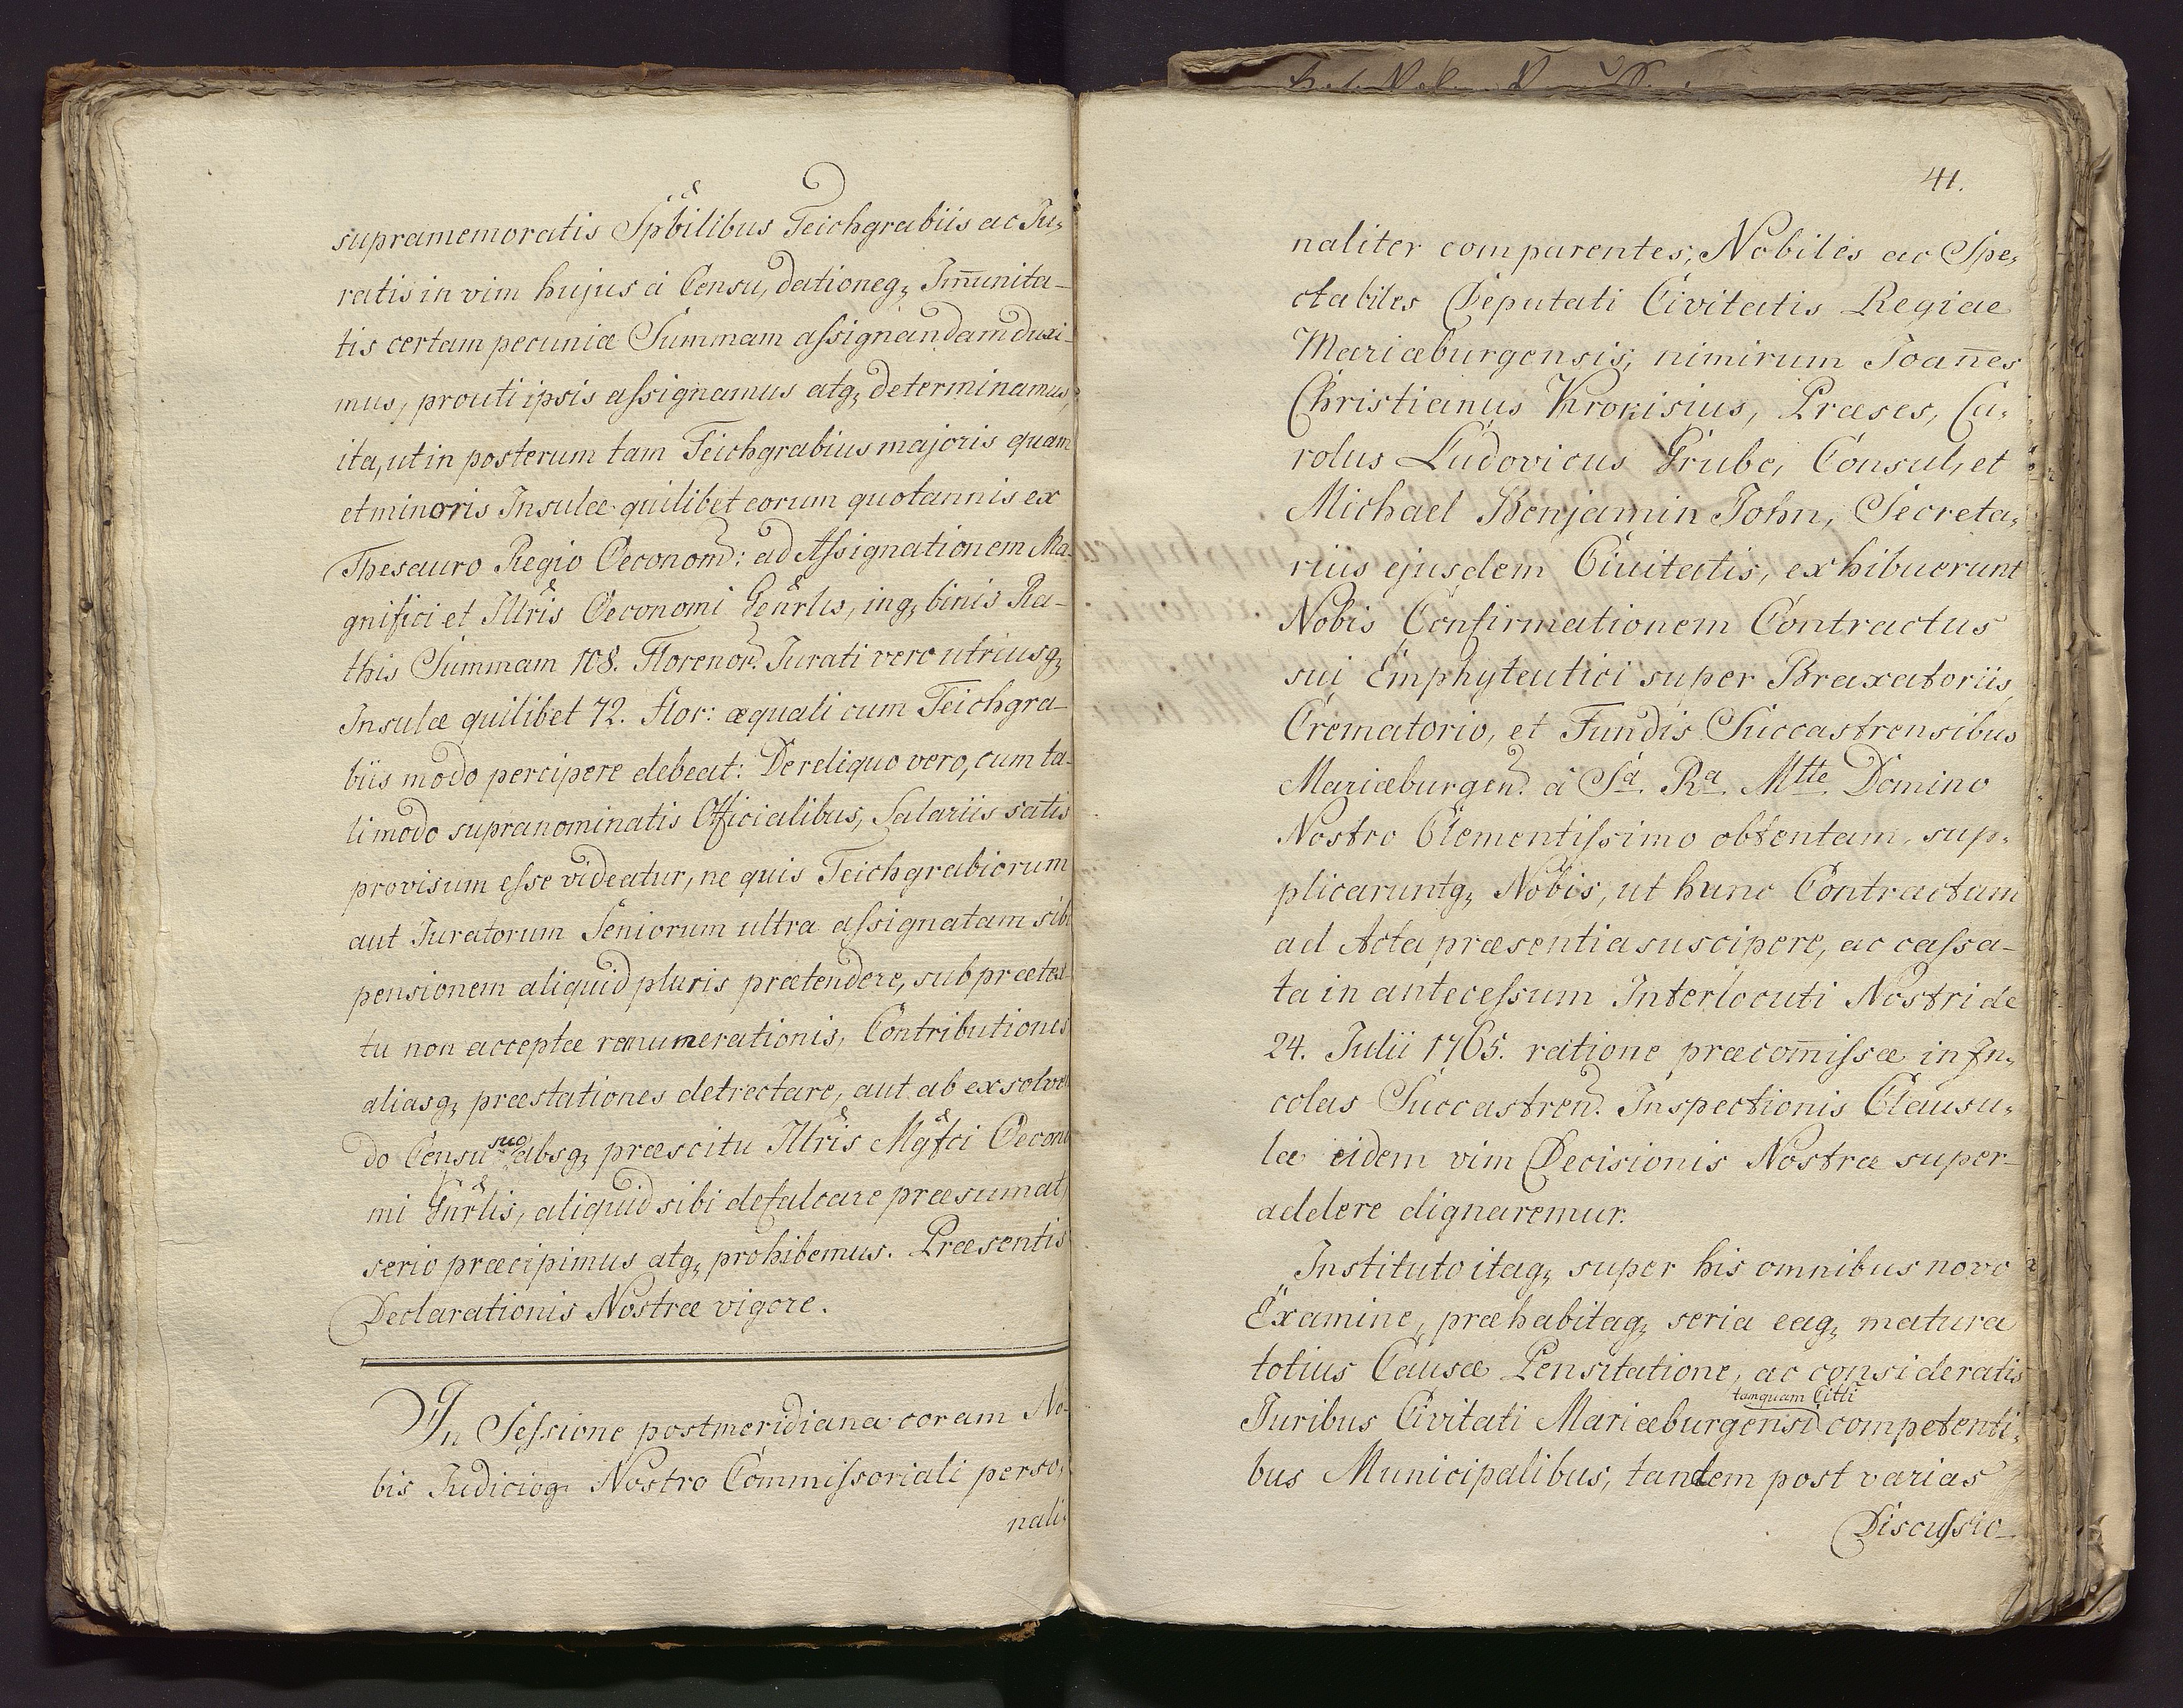 supramemoratis Spbilibus Teichgrabiis ac Ju,
ratis in vim hujus à Censu, dationeq, Im̄unita-
tis certam pecuniæ Summam assignandam duxi-
mus, prouti ipsis assignamus atq, determinamus,
ita, ut in posterum tam Teichgrabius majoris quam
et minoris Insulæ quilibet eorum quotannis ex
Thesauro Regio Oeconom: ad Assignationem Ma-
gnifici et Illris Oeconomi Genrlis, inq, binis Ra-
this Summam 108. Florenor. Jurati vero utriusq,
Insulæ quilibet 72. flor: æquali cum Teichgra-
biis modo percipere debeat: De reliquo vero, cum ta-
li modo supranominatis Officialibus, Salariis satis
provisum esse videatur, ne quis Teichgrabiorum
aut Juratorum Seniorum ultra assignatam sibi
pensionem aliquid pluris prætendere, sub prætex-
tu non acceptæ renumerationis, Contributiones
aliasq, præstationes detrectare, aut ab exsolven
do Censu suo absq, præscitu Illris Mgfci Oecono
mi Gnrlis, aliquid sibi defalcare præsumat,
serio præcipimus atq, prohibemus. Præsentis
Declarationis Nostræ vigore.
In Sessione postmeridiana coram No-
bis Judicioq, Nostro Commissoriali perso,
nali,
41.
naliter comparentes, Nobiles ac Spe,
ctabiles Deputati Civitatis Regiae
Mariæburgensis, nimirum Joan̄es
Christianus Krokisius, Præses, Ca,
rolus Ludovicus Grube, Consul, et
Michael Benjamin John, Secreta,
rius ejusdem Civitatis, exhibuerunt
Nobis Confirmationem Contractus
sui Emphyteutici super Braxatoriis,
Crematorio, et Fundis Succastrensibus
Mariæburgen. à Sa. Ra. Mtte. Domino
Nostro Clementissimo obtentam, sup,
plicaruntq, Nobis, ut hunc Contractum
ad Acta præsentia suscipere, ac cassa-
ta in antecessum Interlocuti Nostri de
24. Julii 1765. ratione præcom̄issæ in In,
colas Succastren. Inspectionis Clausu,
læ eidem vim Decisionis Nostræ super-
addere dignaremur.
Instituto itaq, super his omnibus novo
Examine, præhabitaq, seria eaq, matura
totius Causæ Pensitatione, ac consideratis
tamquam Citti
Juribus Civitati Mariæburgensi competenti,
bus Municipalibus, tandem post varias
Discussio-